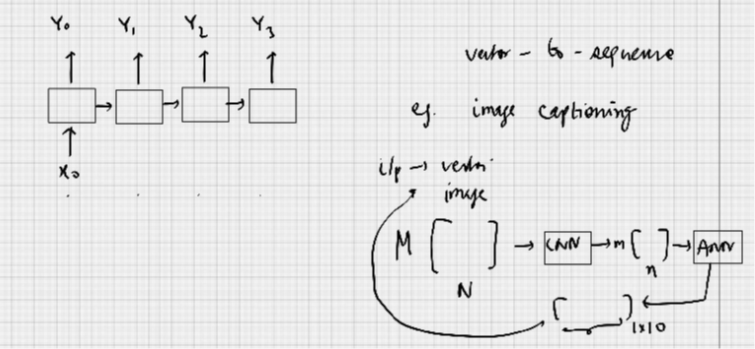 Y₀ Y₁ Y₂ Y₃
X₀
vector - to - sequence
eg. image captioning
i/p → vector
image
M [ ] → CNN → m [ ] → ANN
N n
[ ] 1x10